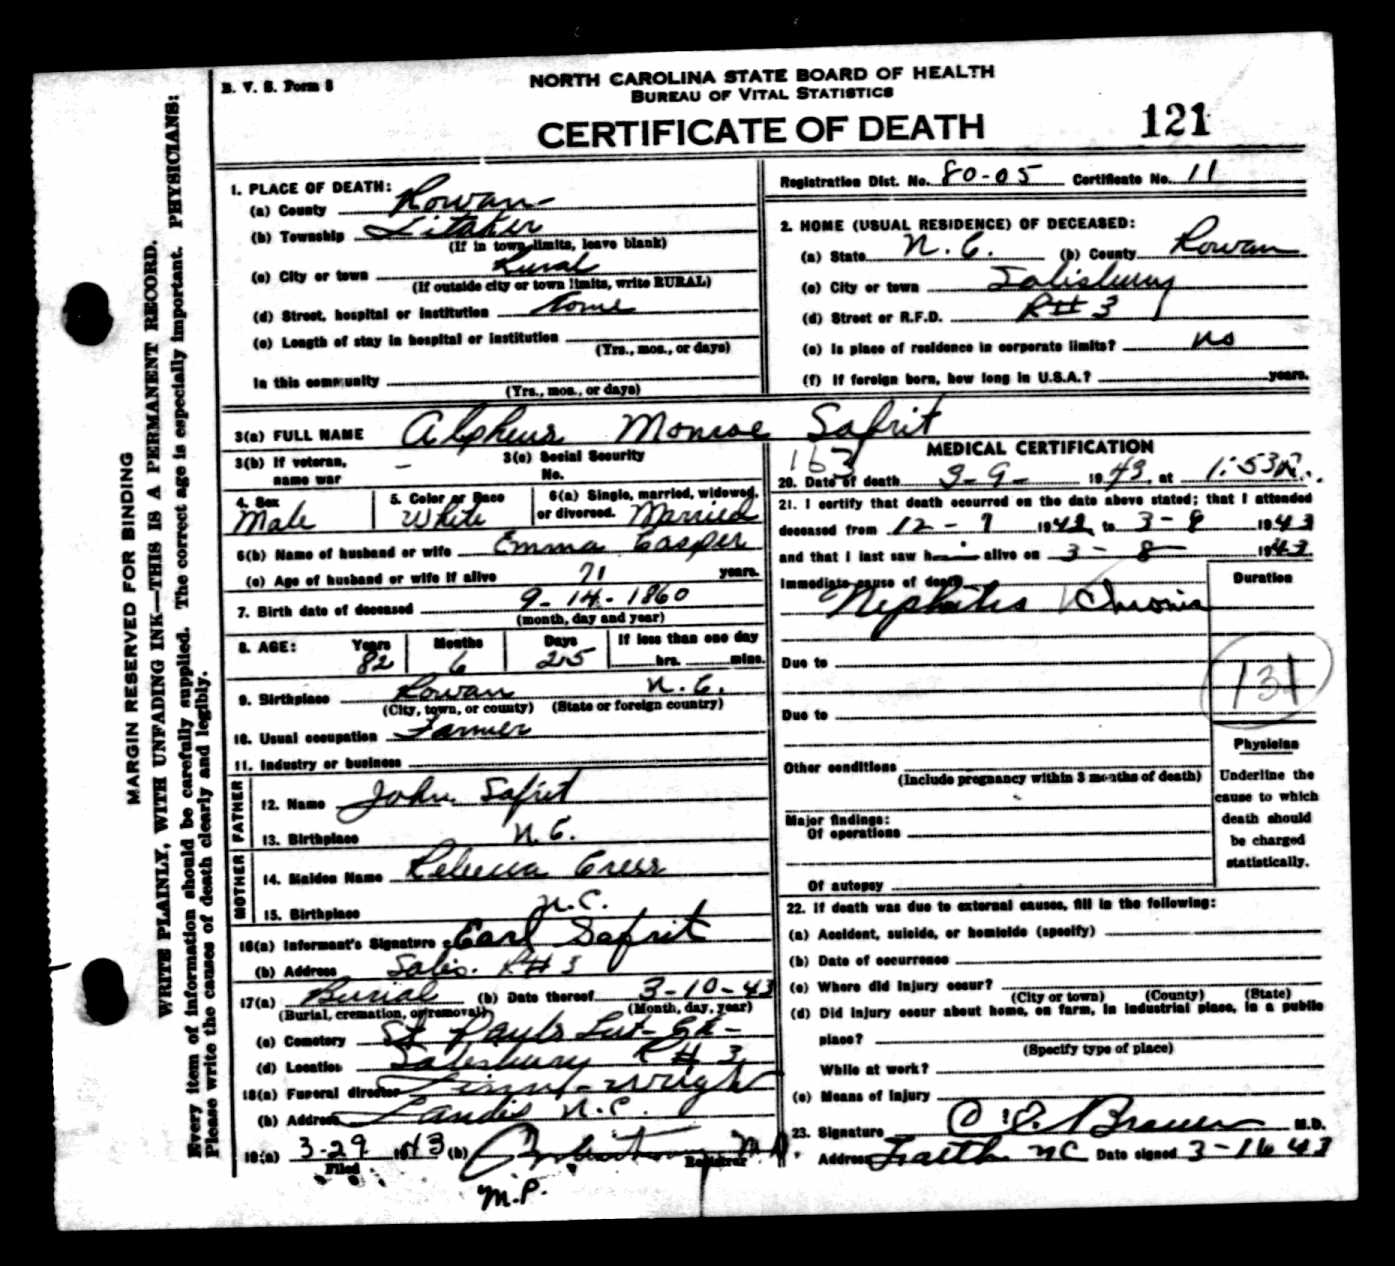 B. V. S. Form 8
NORTH CAROLINA STATE BOARD OF HEALTH
BUREAU OF VITAL STATISTICS
CERTIFICATE OF DEATH
121
MARGIN RESERVED FOR BINDING
WRITE PLAINLY, WITH UNFADING INK—THIS IS A PERMANENT RECORD.
Every item of information should be carefully supplied. The correct age is especially important. PHYSICIANS:
Please write the causes of death clearly and legibly.
1. PLACE OF DEATH:
(a) County Rowan
(b) Township Litaker
(If in town limits, leave blank)
(c) City or town Rural
(If outside city or town limits, write RURAL)
(d) Street, hospital or institution Home
(e) Length of stay in hospital or institution
(Yrs., mos., or days)
In this community
(Yrs., mos., or days)
Registration Dist. No. 80-05 Certificate No. 11
2. HOME (USUAL RESIDENCE) OF DECEASED:
(a) State N. C. (b) County Rowan
(c) City or town Salisbury
(d) Street or R.F.D. R# 3
(e) Is place of residence in corporate limits? no
(f) If foreign born, how long in U.S.A.? years.
3(a) FULL NAME Alpheus Monroe Safrit
3(b) If veteran, name war –
3(c) Social Security No.
4. Sex Male
5. Color or Race White
6(a) Single, married, widowed, or divorced. Married
6(b) Name of husband or wife Emma Casper
(c) Age of husband or wife if alive 71 years.
7. Birth date of deceased 9-14-1860
(month, day and year)
8. AGE: Years 82 Months 6 Days 25 If less than one day hrs. mins.
9. Birthplace Rowan N. C.
(City, town, or county) (State or foreign country)
10. Usual occupation Farmer
11. Industry or business
FATHER
12. Name John Safrit
13. Birthplace N. C.
MOTHER
14. Maiden Name Rebecca Cress
15. Birthplace N. C.
16(a) Informant's Signature Earl Safrit
(b) Address Salis. R# 3
17(a) Burial (b) Date thereof 3-10-43
(Burial, cremation, or removal) (Month, day, year)
(c) Cemetery St Pauls Lut- Ch-
(d) Location Salisbury R# 3
18(a) Funeral director Linn-Wright
(b) Address Landis N. C.
19(a) 3-29 1943 (b) M.D.
Filed Registrar
M.P.
MEDICAL CERTIFICATION
163
20. Date of death 3-9- 1943, at 1:53 A.
21. I certify that death occurred on the date above stated; that I attended
deceased from 12-9 1942 to 3-8 1943
and that I last saw him alive on 3-8 1943
Immediate cause of death Duration
Nephritis Chronic
Due to
131
Due to
Other conditions
(Include pregnancy within 3 months of death)
Major findings:
Of operations
Of autopsy
Physician
Underline the
cause to which
death should
be charged
statistically.
22. If death was due to external causes, fill in the following:
(a) Accident, suicide, or homicide (specify)
(b) Date of occurrence
(c) Where did injury occur?
(City or town) (County) (State)
(d) Did injury occur about home, on farm, in industrial place, in a public
place?
(Specify type of place)
While at work?
(e) Means of injury
23. Signature Brawer M.D.
Address Faith NC Date signed 3-16 43